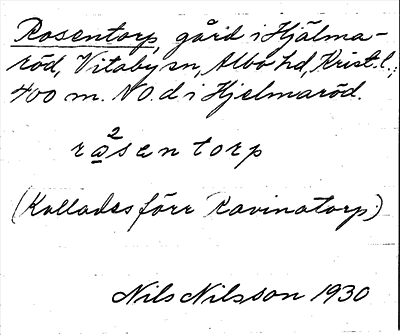 Rosentorp, gård i Hjälma-
röd, Vitaby sn, Albo hd, Krist. l.;
400 m. NO. d i Hjelmaröd.
rå²sentorp
(Kallades förr Ravinatorp)
Nils Nilsson 1930